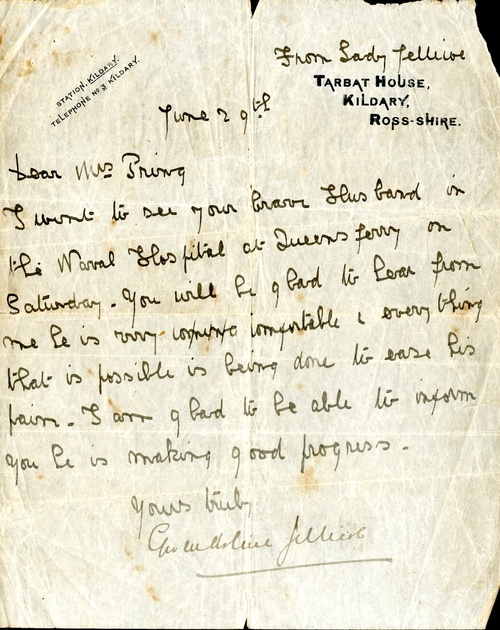 STATION, KILDARY.
TELEPHONE No 3 KILDARY.
From Lady Jellicoe
TARBAT HOUSE,
KILDARY,
ROSS-SHIRE.
June 29th
Dear Mrs Pring
I went to see your brave Husband in
the Naval Hospital at Queensferry on
Saturday. You will be glad to hear from
me he is very comfortable & every thing
that is possible is being done to ease his
pain. I am glad to be able to inform
you he is making good progress.
Yours truly
Gwendoline Jellicoe